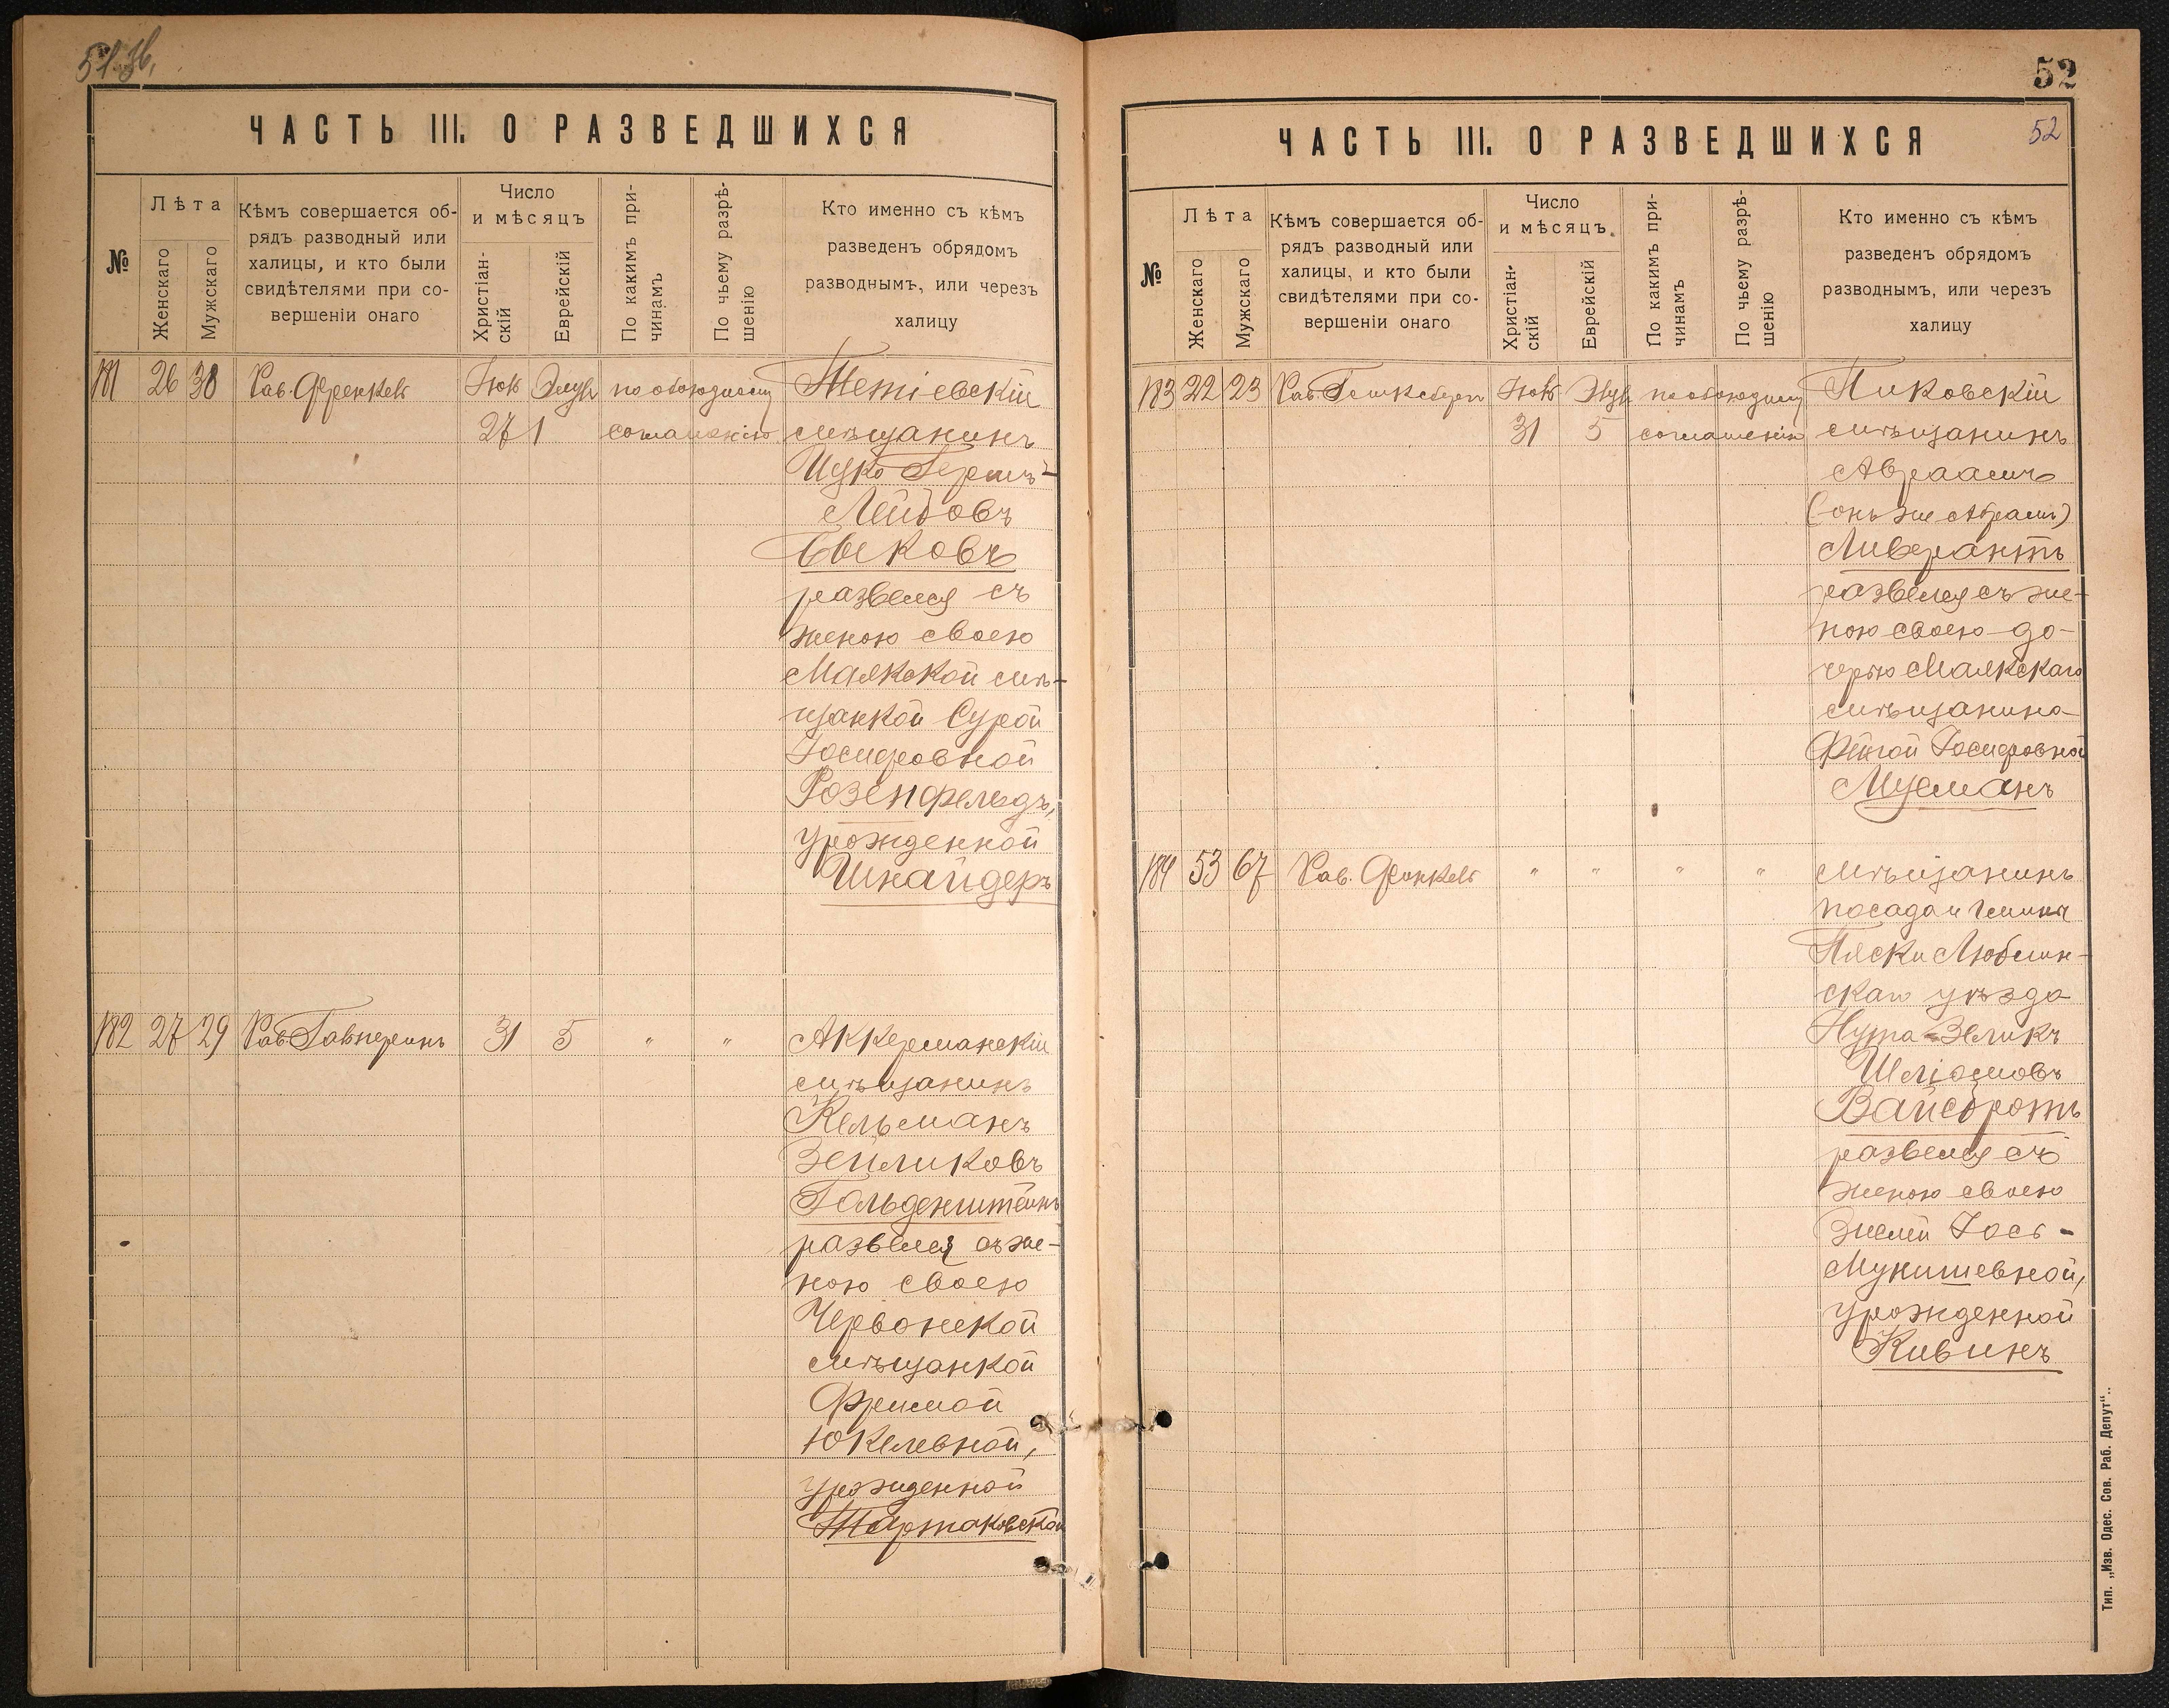 52
ЧАСТЬ III. О РАЗВЕДШИХСЯ
№
Лѣта
Женскаго
Мужскаго
Кѣмъ совершается об-
рядъ разводный или
халицы, и кто были
свидѣтелями при со-
вершеніи онаго
Число
и мѣсяцъ
Христіан-
скій
Еврейскій
По какимъ при-
чинамъ
По чьему разрѣ-
шенію
Кто именно съ кѣмъ
разведенъ обрядомъ
разводнымъ, или черезъ
халицу
181 26 38 Рав. Френкель Іюль Элулъ по обоюдному Тетіевскій
27 1 соглашенію мѣщанинъ
Ицко Гершъ-
Лейбовъ
Быковъ
развелся съ
женою своею
Маякской мѣ-
щанкой Сурой
Іосифовной
Розенфельдъ,
урожденной
Шнайдеръ
182 27 29 Рав. Галперинъ 31 5 " " Аккерманскій
мѣщанинъ
Кельманъ
Зейликовъ
Гольденштейнъ
развелся съ же-
ною своею
Червонской
мѣщанкой
Фримой
Юкелевной,
урожденной
Тартаковской
ЧАСТЬ III. О РАЗВЕДШИХСЯ
52
№
Лѣта
Женскаго
Мужскаго
Кѣмъ совершается об-
рядъ разводный или
халицы, и кто были
свидѣтелями при со-
вершеніи онаго
Число
и мѣсяцъ.
Христіан-
скій
Еврейскій
По какимъ при-
чинамъ
По чьему разрѣ-
шенію
Кто именно съ кѣмъ
разведенъ обрядомъ
разводнымъ, или черезъ
халицу
183 22 23 Рав. Іюль Элулъ по обоюдному Пиковскій
31 5 соглашенію мѣщанинъ
Авраамъ
(онъ же Абрамъ)
Ливерантъ
развелся съ же-
ною своею до-
черью Маякскаго
мѣщанина
Фейгой Іосифовной
Мусманъ
184 53 67 Рав. Френкель " " " " мѣщанинъ
посада и гмины
Пяски Люблин-
скаго уѣзда
Нута-Зеликъ
Шліомовъ
Вайсбротъ
развелся съ
женою своею
Іось-
Мунишевной,
урожденной
Кивинъ
Тип. „Изв. Одес. Сов. Раб. Депут“..